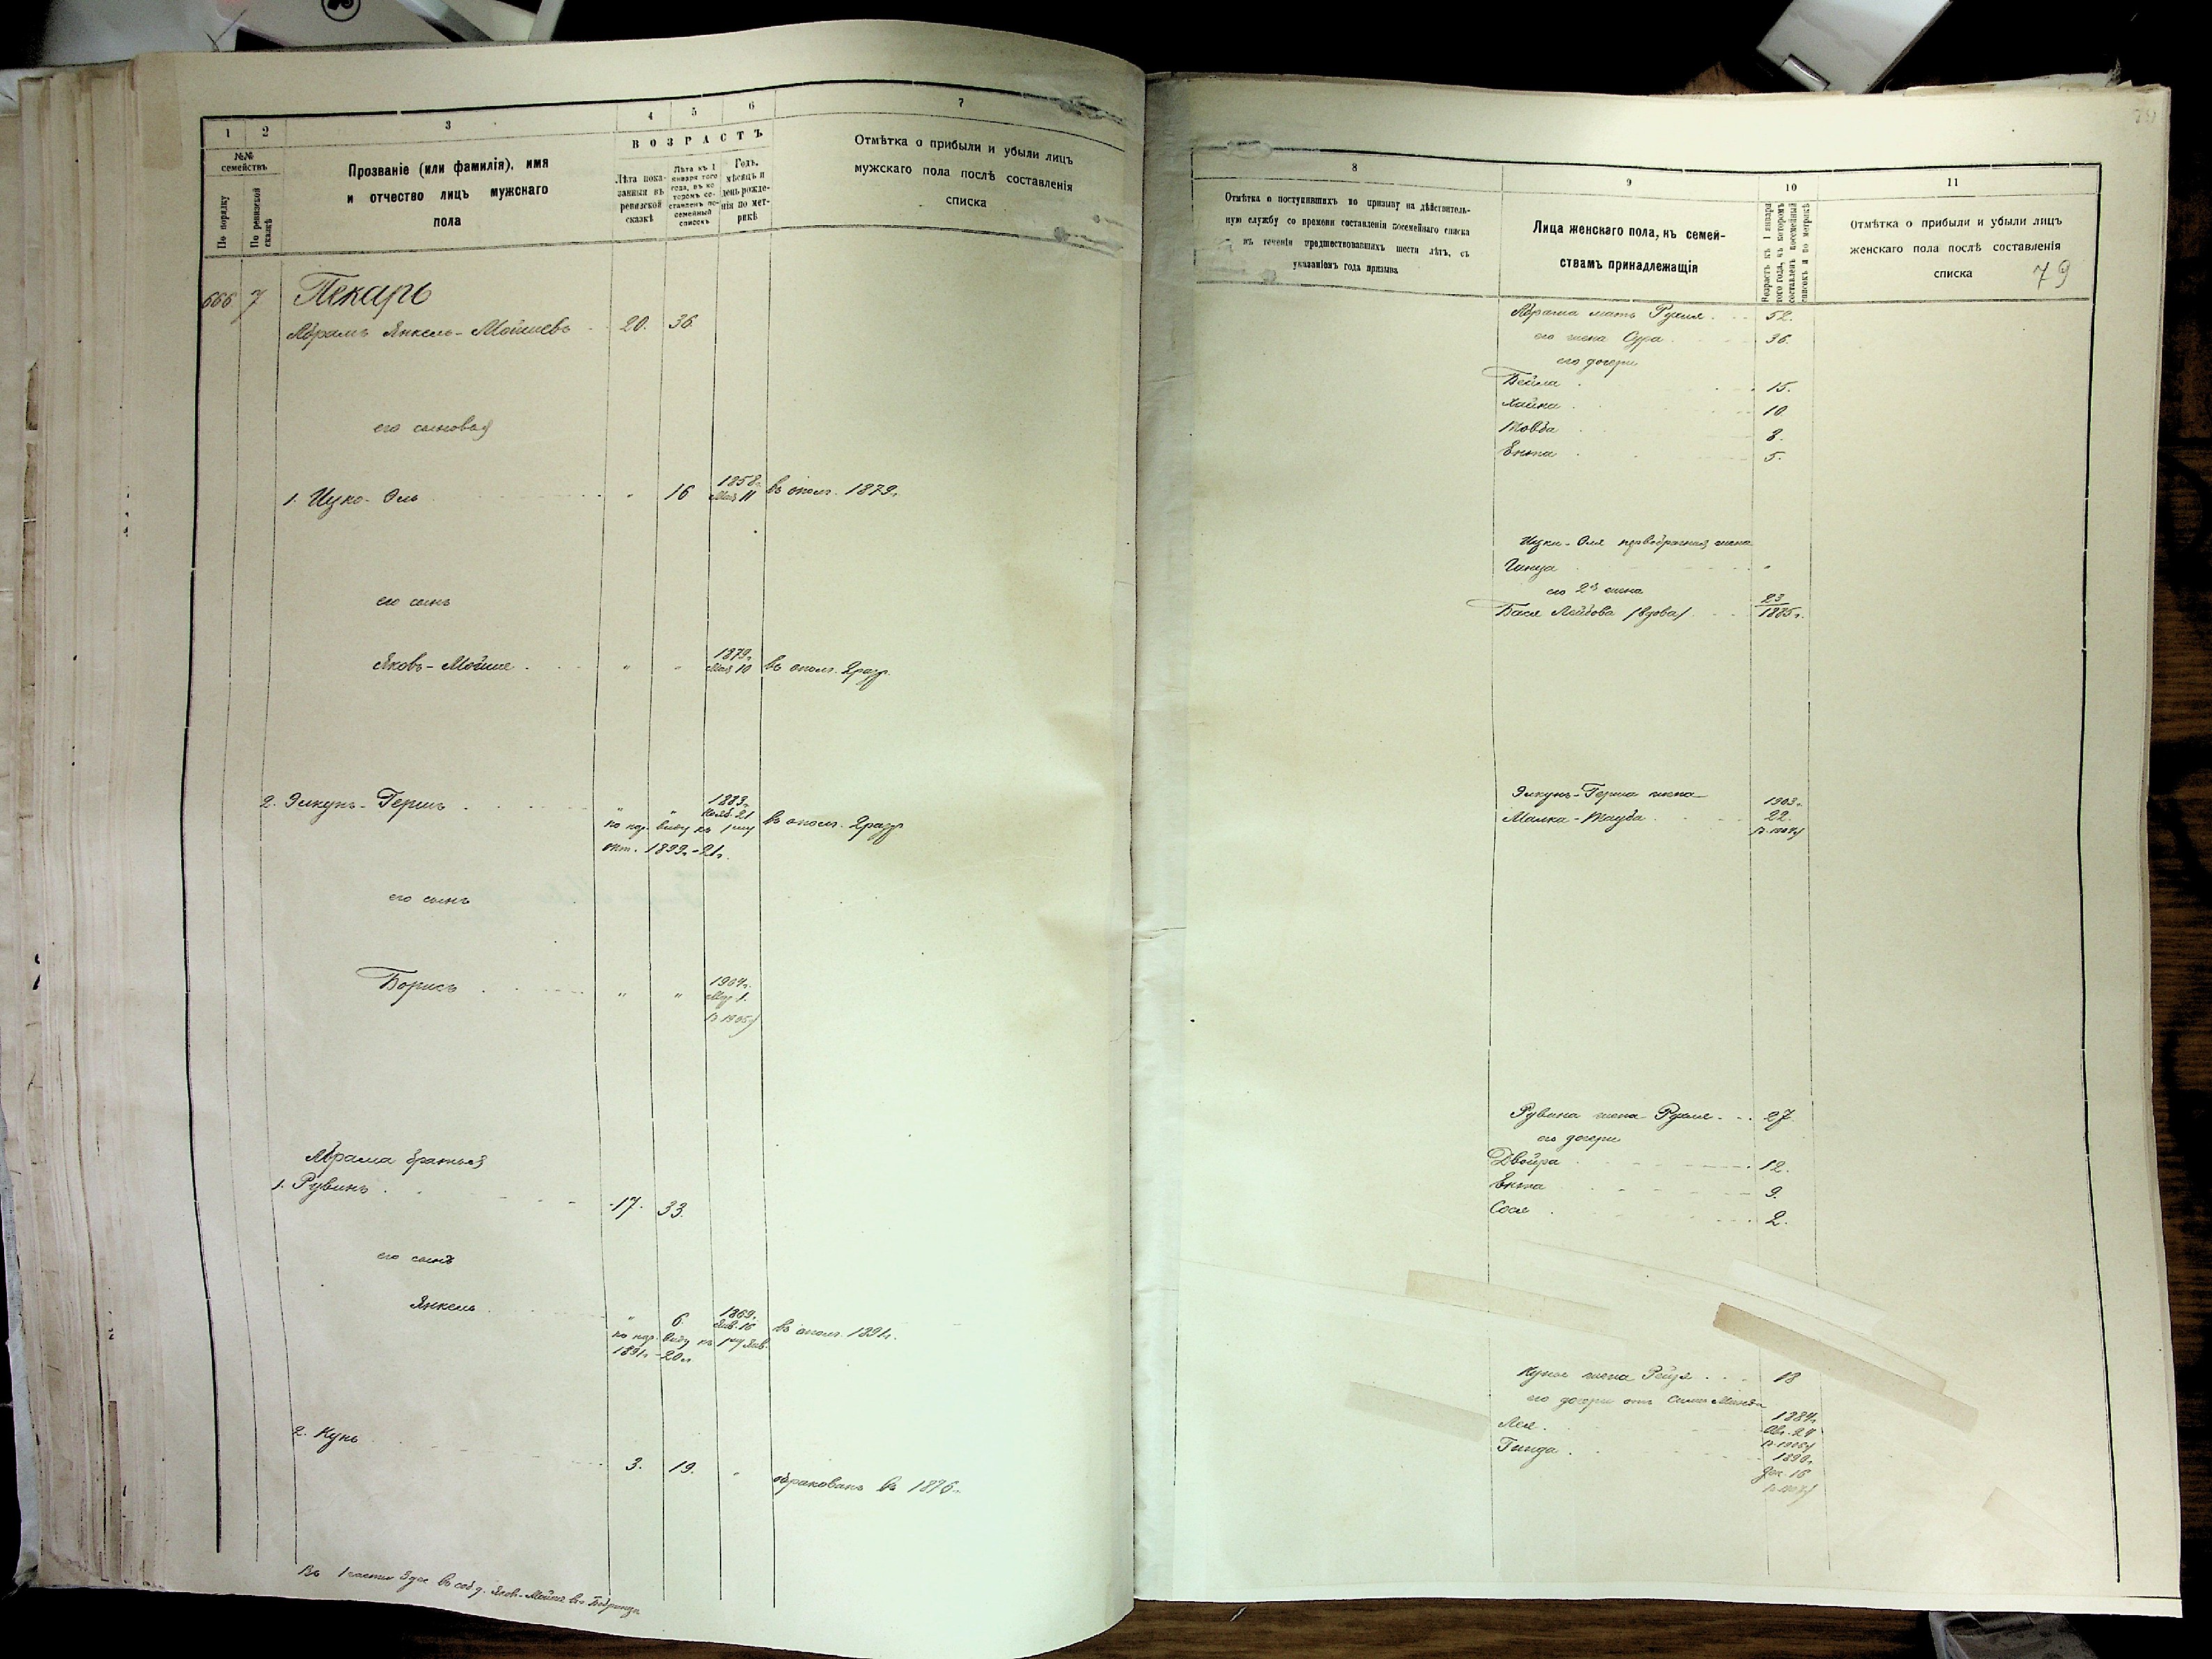 1 2 3 4 5 6 7
№№ семействъ
По порядку
По ревизской сказкѣ
Прозваніе (или фамилія), имя
и отчество лицъ мужскаго
пола
ВОЗРАСТЪ
Лѣта показанныя въ ревизской сказкѣ
Лѣта къ 1 января того года, въ которомъ составленъ посемейный списокъ
Годъ, мѣсяцъ и день рожденія по метрикѣ
Отмѣтка о прибыли и убыли лицъ
мужскаго пола послѣ составленія
списка
666. 7 Пекарь
Абрамъ Янкель-Мойшевъ 20. 36.
его сыновья
1. Ицко-Эль " 16 1858г. Мая 11 въ опол. 1879г.
его сынъ
Яковъ-Мойше " " 1879г. Мая 10 въ опол. 2 разр.
2. Элкунъ-Гершъ " " 1883г. Нояб. 21 въ опол. 2 разр.
по нар. виду къ 1му
окт. 1899г.-21г.
его сынъ
Борисъ " " 1904г.
Мар. 1.
Абрама братья
1. Рувинъ 17. 33.
его сынъ
Янкель " 6. 1869г. Янв. 16 въ опол. 1891г.
по нар. виду къ 1му Янв.
1891г.-20л
2. Кунь 3. 19. " обракованъ въ 1876г.
8 9 10 11
Отмѣтка о поступившихъ по призыву на дѣйствитель-
ную службу со времени составленія посемейнаго списка
въ теченіи предшествовавшихъ шести лѣтъ, съ
указаніемъ года призыва
Лица женскаго пола, къ семей-
ствамъ принадлежащія
Возрастъ къ 1 января того года, въ которомъ составленъ посемейный списокъ и по метрикѣ
Отмѣтка о прибыли и убыли лицъ
женскаго пола послѣ составленія
списка
79
Абрама мать Рухля 52.
его жена Сура 36.
его дочери
Бейла 15.
Хайка 10
Товба 8.
Ента 5.
Ицки-Эля первобрачная жена
Гинда "
его 2я жена
Бася Лейбова (вдова) 23
1885г.
Элкунъ-Герша жена 1903г.
Малка-Тауба 22.
Рувина жена Рухля 27.
его дочери
Двойра 12.
Ента 9.
Сося 2.
Куня жена Рейзя 18
его дочери отъ
Лея 1884г.
Гинда 1890г.
Дек. 16